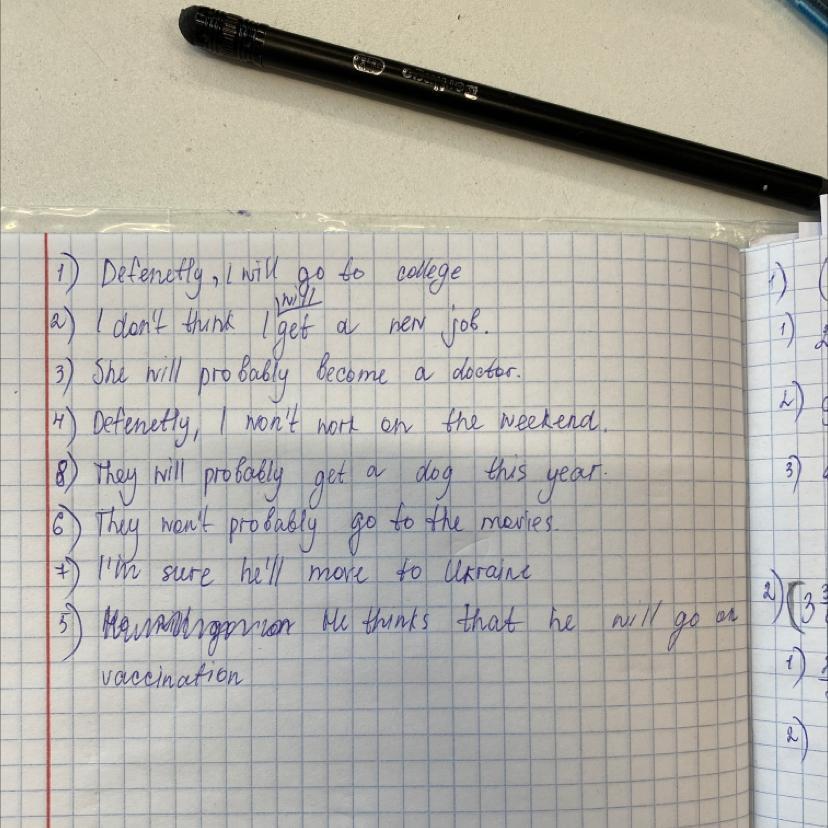 1) Defenetly, I will go to college
will
2) I don't think I get a new job.
3) She will probably become a doctor.
4) Defenetly, I won't work on the weekend.
8) They will probably get a dog this year.
6) They won't probably go to the movies.
7) I'm sure he'll move to Ukraine
5) He thinks that he will go on
vaccination
1)
1)
2)
3)
2) (3
1)
2)